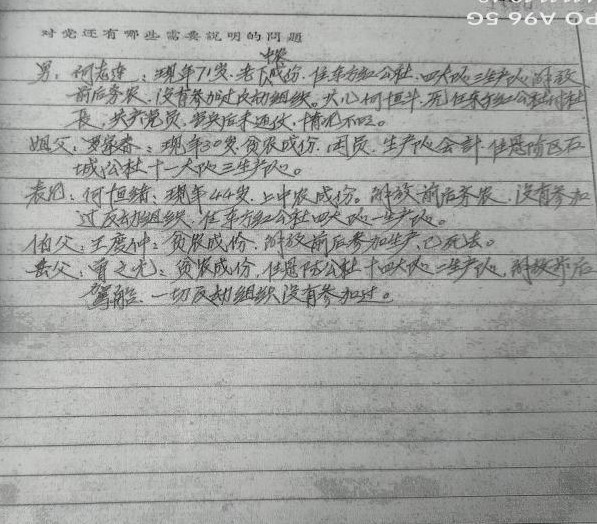 PO A96 5G
对党还有哪些需要说明的问题
中农
男：何志连：现年71岁．老成份．住东方红公社．四大队三生产队．解放
前后务农．没有参加过反动组织。大儿何恒斗．现任东方红公社付社
长．共产党员．当兵后未通伩．情况不明。
姐父：罗荣春：现年30岁．贫农成份．团员．生产队会计．住恩阳区石
城公社十一大队三生产队。
表兄：何恒绪：现年44岁．上中农成份。解放前后务农．没有参加
过反动组织．住东方红公社四大队一生产队。
伯父：王度仲：贫农成份．解放前后参加生产．已死去。
岳父：曾文光：贫农成份．住恩阳公社十四大队二生产队．解放前后
驾船．一切反动组织没有参加过。